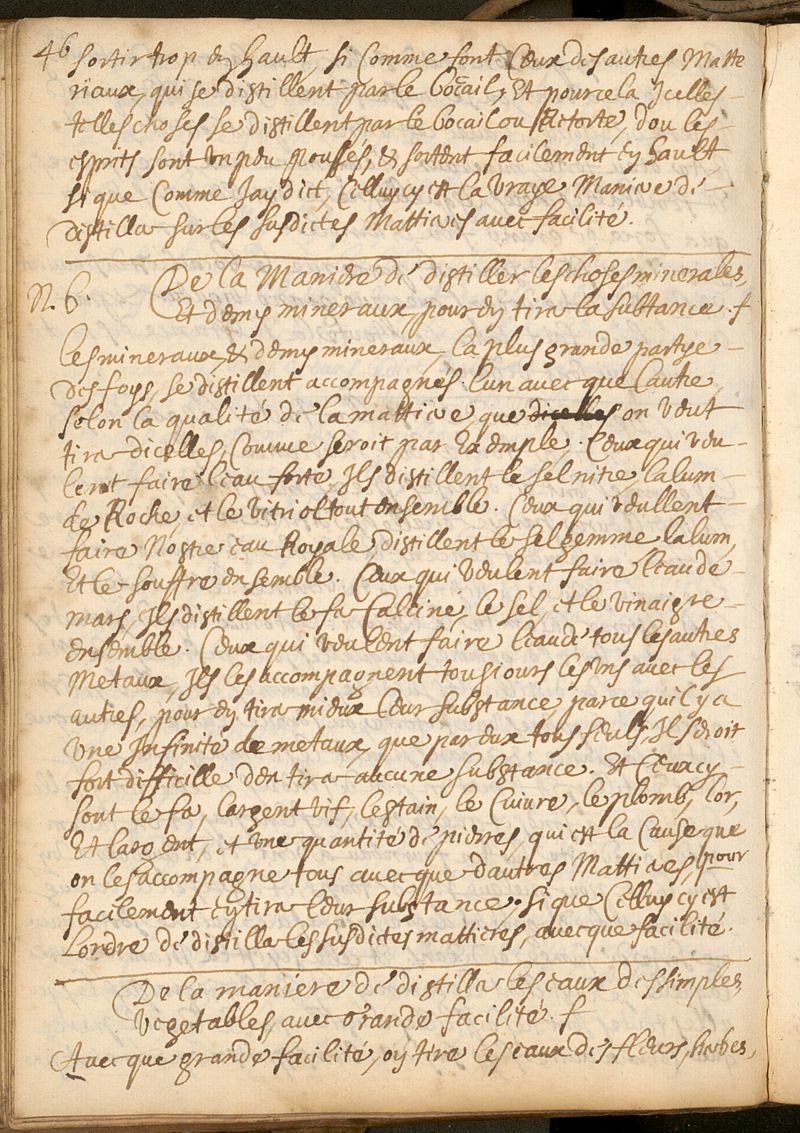 46 sortir trop en hault, si comme font ceux des autres Matte
riaux, qui se distillent par le bocail, Et pour cela Icelles
telles choses se distillent par le bocail ou Retorte, dou les
esprits sont un peu poussés, & sortent facilement en hault
si que comme Jay dict, Celluy cy est la vraye Maniere de
distiller sur les susdictes Mattieres avec facilité.
N. 6. De la Maniere de distiller les choses minerales,
Et demy mineraux, pour en tirer la substance. f
Les mineraux, & demy mineraux, la plus grande partye
des foys, se distillent accompagnés l'un avecque l'autre,
selon la qualité de la mattiere, que dicelles on veut
tirer dicelles, Comme seroit par Exemple. Ceux qui veu-
lent faire l'eau forte, Ils distillent le sel nitre, lalum
de Roche, et le vitriol tout ensemble. Ceux qui veullent
faire Nostre eau Royale distillent le sel gemme lalum,
Et le souffre ensemble. Ceux qui veulent faire l'eau de
mars, Ils distillent le fer Calciné, le sel, et le vinaigre
ensemble. Ceux qui veulent faire l'eau de tous les autres
Metaux, Ils les accompagnent tousiours les uns avec les
autres, pour en tirer mieux leur substance, parce qu'il y a
une Infinité de metaux, que par eux tous seuls, Il seroit
fort difficille d'en tirer aucune substance. Et Ceux cy
sont le fer, l'argent vif, l'estain, le Cuivre, le plomb, l'or,
Et largent, et une quantité de pierres, qui est la Cause que
on les accompagne tous avecque d'autres Mattieres, pour
facilement en tirer leur substance, si que Celluy cy est
Lordre de distiller les susdictes mattieres, avecque facilité.
De la maniere de distiller les eaux des simples
vegetables, avec grande facilité. f
Avecque grande facilité, on tire les eaux des fleurs, herbes,